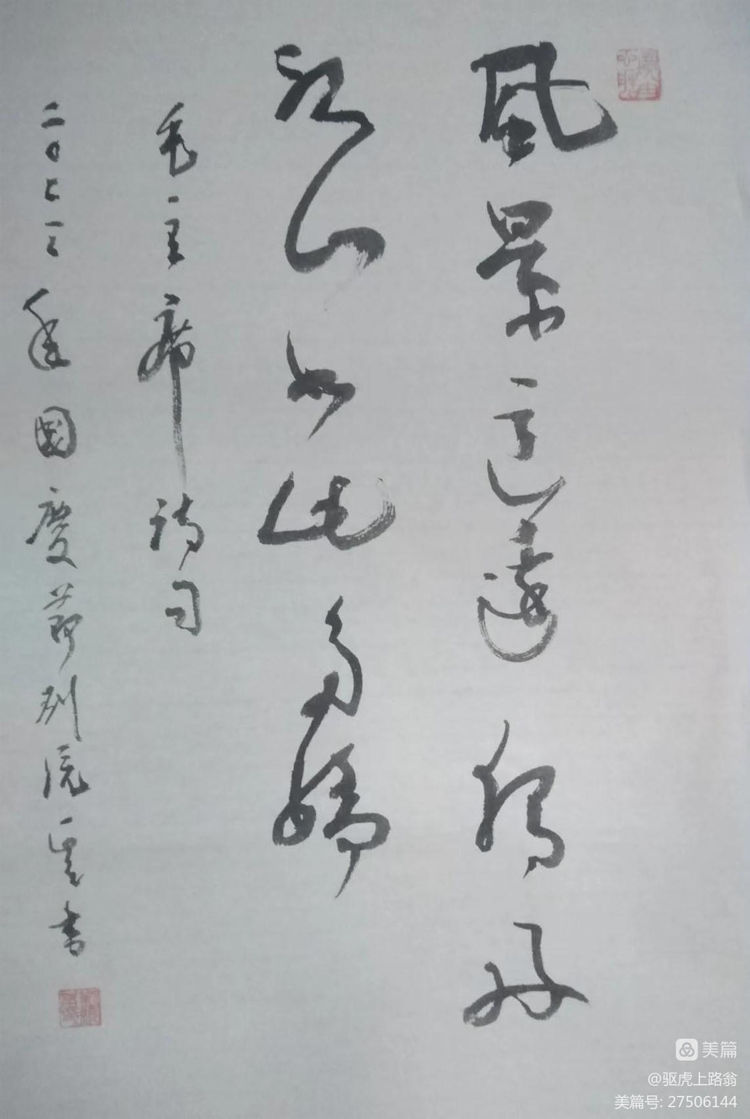 風景這邊獨好
江山如此多嬌
毛主席詩句
二〇二 年國慶節 書
美篇
@驱虎上路翁
美篇号: 27506144